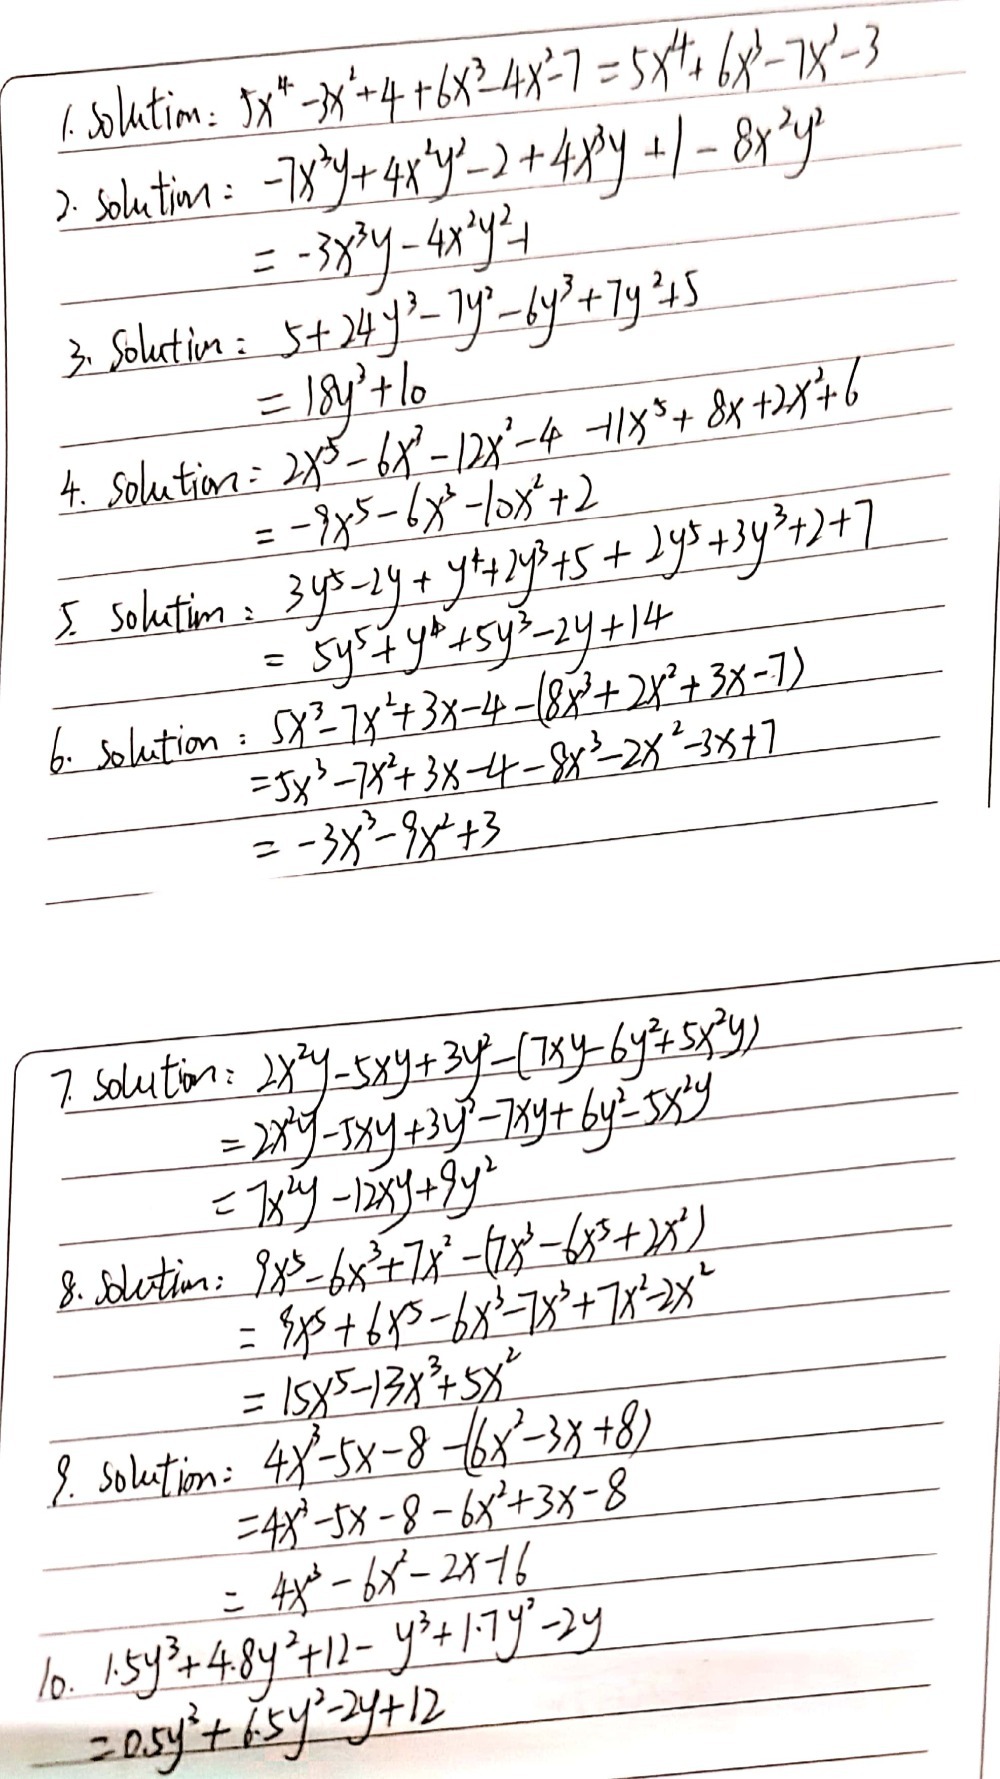 1. Solution: 5x⁴-3x²+4+6x³-4x²-7=5x⁴+6x³-7x²-3
2. Solution: -7x³y+4x²y²-2+4x³y+1-8x²y²
= -3x³y-4x²y²-1
3. Solution: 5+24y³-7y²-6y³+7y²+5
= 18y³+10
4. Solution: 2x⁵-6x³-12x²-4-11x⁵+8x+2x²+6
= -9x⁵-6x³-10x²+2
5. Solution: 3y⁵-2y+y⁴+2y³+5+2y⁵+3y³+2+7
= 5y⁵+y⁴+5y³-2y+14
6. Solution: 5x³-7x²+3x-4-(8x³+2x²+3x-7)
=5x³-7x²+3x-4-8x³-2x²-3x+7
= -3x³-9x²+3
7. Solution: 2x²y-5xy+3y²-(7xy-6y²+5x²y)
=2x²y-5xy+3y²-7xy+6y²-5x²y
=7x²y-12xy+9y²
8. Solution: 9x⁵-6x³+7x²-(7x³-6x⁵+2x²)
= 9x⁵+6x⁵-6x³-7x³+7x²-2x²
= 15x⁵-13x³+5x²
9. Solution: 4x³-5x-8-(6x²-3x+8)
=4x³-5x-8-6x²+3x-8
= 4x³-6x²-2x-16
10. 1.5y³+4.8y²+12-y³+1.7y²-2y
=0.5y³+6.5y²-2y+12